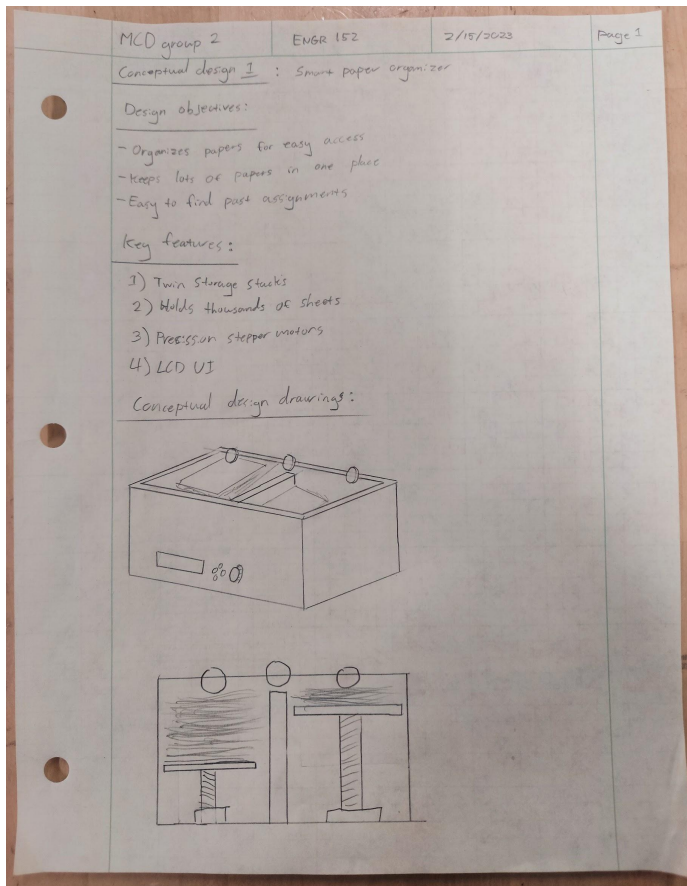 MCD group 2
ENGR 152
2/15/2023
page 1
Conceptual design 1 : Smart paper organizer
Design objectives:
- Organizes papers for easy access
- Keeps lots of papers in one place
- Easy to find past assignments
Key features:
1) Twin Storage stacks
2) Holds thousands of sheets
3) Precission stepper motors
4) LCD UI
Conceptual design drawings: